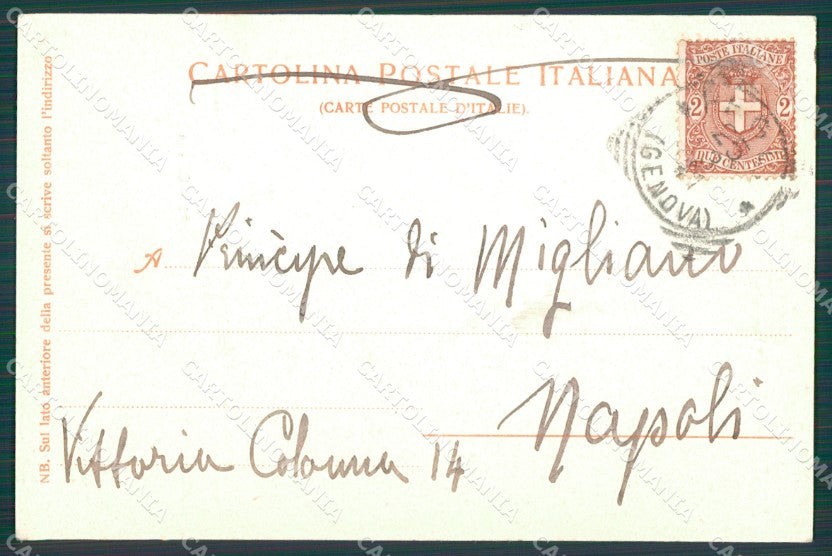 CARTOLINA POSTALE ITALIANA
(CARTE POSTALE D'ITALIE).
POSTE ITALIANE
2 2
DUE CENTESIMI
(GENOVA)
A Principe di Migliano
Napoli
Vittoria Colonna 14
NB. Sul lato anteriore della presente si scrive soltanto l'indirizzo
CARTOLINOMANIA